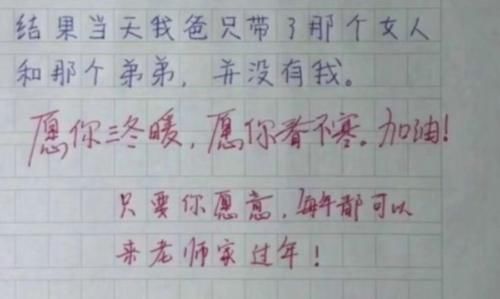 结果当天我爸只带了那个女人
和那个弟弟，并没有我。
愿你三冬暖，愿你春不寒。加油！
只要你愿意，每年都可以
来老师家过年！